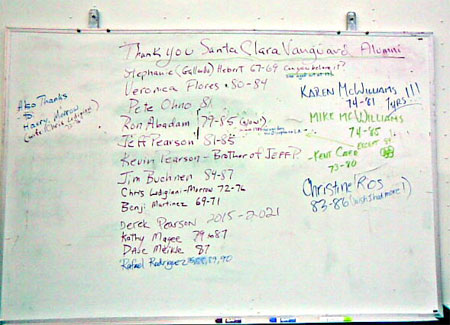 Thank you Santa Clara Vanguard Alumni
Stephanie (Gallardo) Hebert 67-69 Can you believe it?
Veronica Flores 80-84
Pete Ohno 81
Ron Abadam 79-85
Jeff Pearson 81-85
Kevin Pearson - Brother of Jeff P.
Jim Buchnen 84-87
Chris Lodigiani-Morrow 72-76
Benji Martinez 69-71
Derek Pearson 2015-2021
Kathy Magee 79 to 87
Dave Meikle 87
Rafael Rodriguez 89, 90
Also Thanks
to
Harry Morrow
KAREN McWILLIAMS !!!
74-81 7yrs
MIKE McWILLIAMS
74-85
KENT CATER
73-80
Christine Ros
83-86 (wish that more!)